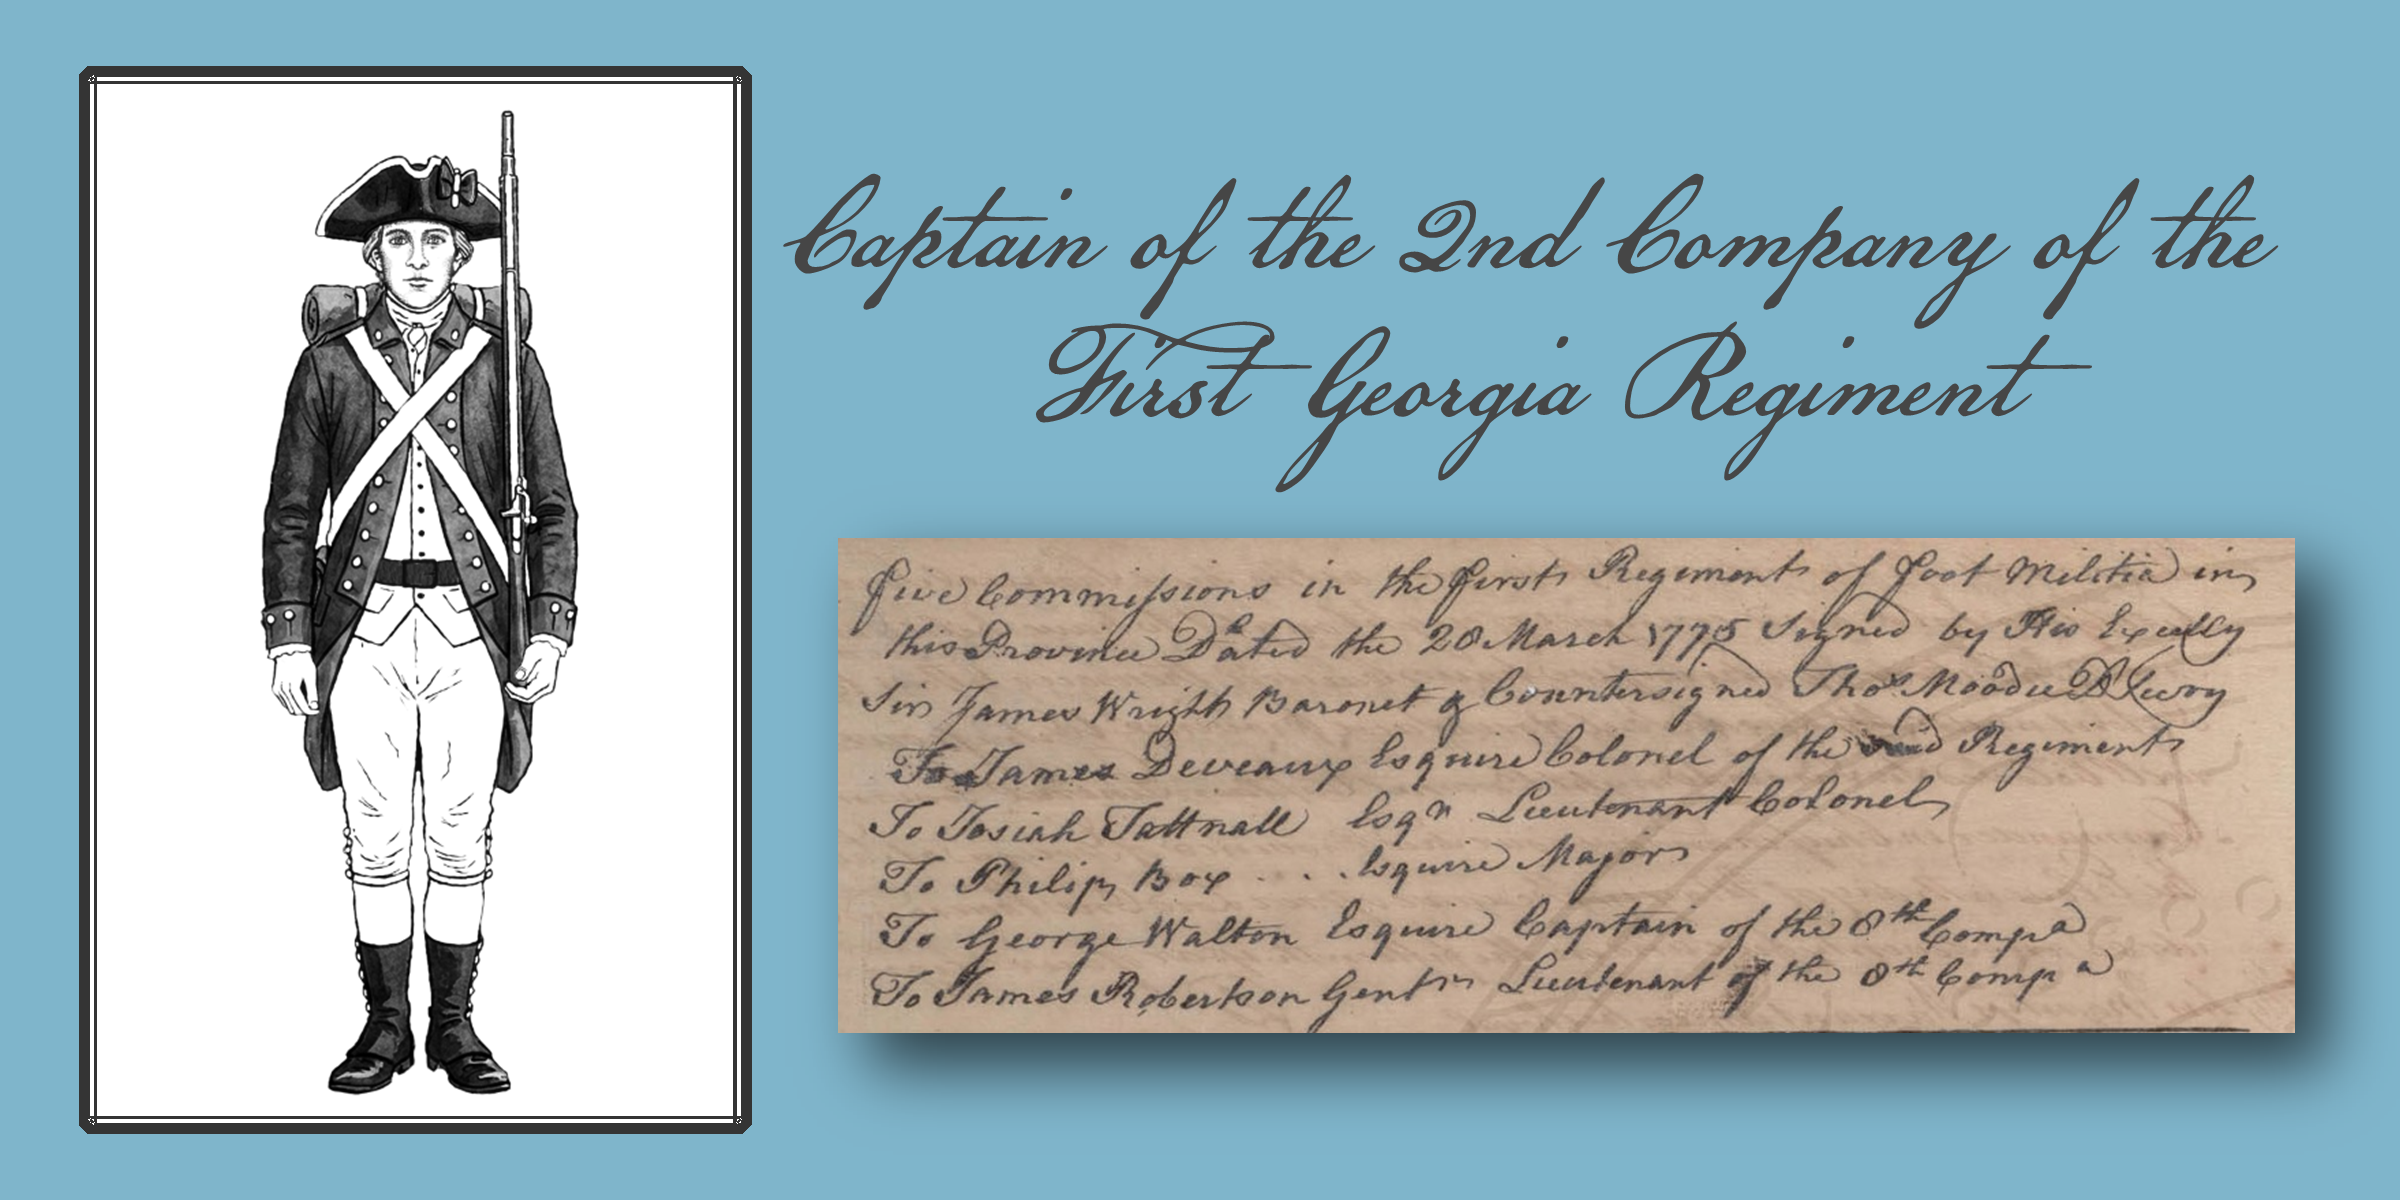 Captain of the 2nd Company of the
First Georgia Regiment
five Commissions in the first Regiment of foot Militia in
this Province Dated the 28 March 1775 Signed by His Excelly
Sir James Wright Baronet & Countersigned Thos Moodie D Secry
To James Deveaux Esquire Colonel of the said Regiment
To Josiah Tattnall Esqr Lieutenant Colonel
To Philip Box . . . Esquire Major
To George Walton Esquire Captain of the 8th Compa
To James Robertson Gentn Lieutenant of the 8th Compa